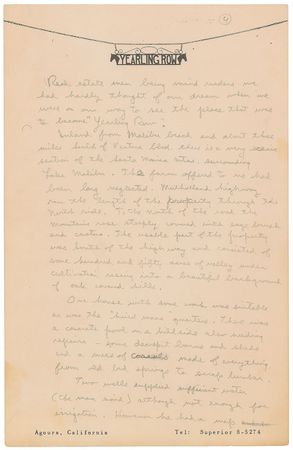 4
YEARLING ROW
Real estate men being mind readers we
had hardly thought of our dream when we
were on our way to see the place that was
to become "Yearling Row".
Inland from Malibu beach and about three
miles south of Ventura blvd. there is a very scenic
section of the Santa Monica mtns. surrounding
Lake Malibu. The farm offered to us had
been long neglected. Mulholland highway
ran the length of the property through the
North end. To the North of the road the
mountains rose steeply covered with sage brush
and cactus. The usable part of the property
was South of the highway and consisted of
some hundred and fifty acres of valley under
cultivation rising into a beautiful background
of oak covered hills.
One house with some work was suitable
as was the "hired mans" quarters. There was
a concrete pond on a hill side also needing
repairs - some decrepit barns and sheds
and a maze of corrals made of everything
from old bed springs to scrap lumber.
Two wells supplied sufficient water
(the man said) although not enough for
irrigation. However he had a map
Agoura, California
Tel: Superior 8-5274